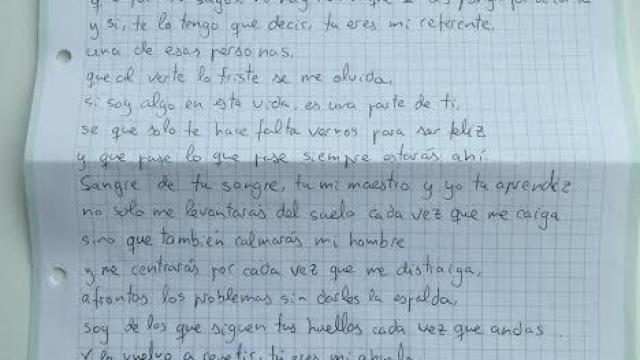 y si, te lo tengo que decir, tu eres mi referente.
una de esas personas.
que al verte lo triste se me olvida,
si soy algo en esta vida, es una parte de ti,
se que solo te hace falta vernos para ser feliz
y que pase lo que pase siempre estarás ahí.
Sangre de tu sangre, tu mi maestro y yo tu aprendez
no solo me levantaras del suelo cada vez que me caiga
sino que también calmarás mi hambre
y me centrarás por cada vez que me distraiga,
afrontas los problemas sin darles la espalda,
soy de los que siguen tus huellas cada vez que andas.
y lo vuelvo a repetir, tú eres mi abuelo